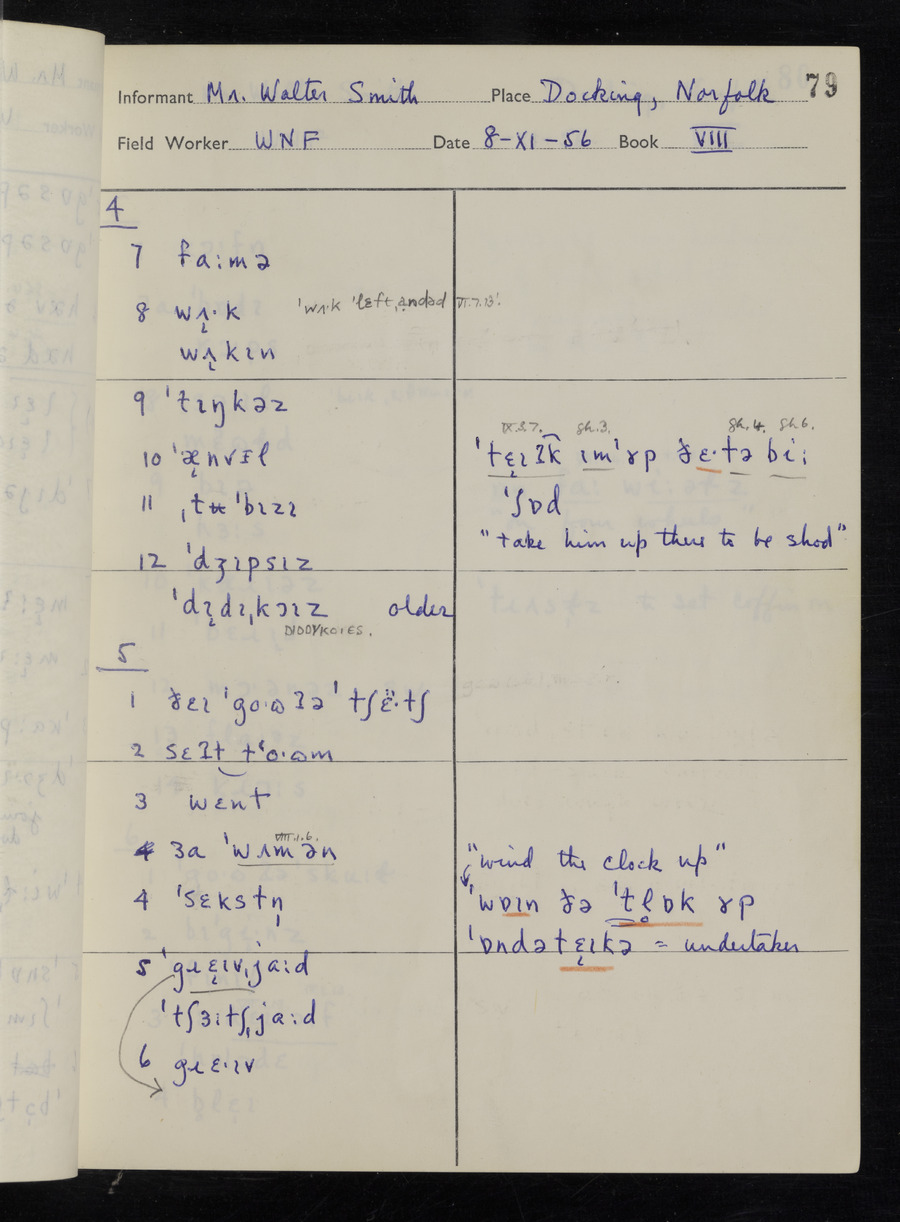 Informant Mr. Walter Smith Place Docking, Norfolk 79
Field Worker WNF Date 8-XI-56 Book VIII
4
7 faːmə
8 wʌ̢·k ˈwʌ·k ˈleftˌandəd VI.7.13.
wʌ̢kɪn
9 ˈtɪŋkəz
10 ˈænvɪl
11 ˈbɪzɪ
12 ˈdʒɪpsɪz
ˈdɪdɪˌkɔɪz older
DIDDYKOIES.
5
1 ðɛɪ ˈgo·ʊʔə ˈtʃɛ̈·tʃ
2 sɛʔt tʻo·ʊm
3 wɛnt
VIII.1.6.
4 ɜa ˈwʌmən
4 ˈsɛkstn̩
5 ˈgɹɛɪvˌjaːd
ˈtʃɜːtʃˌjaːd
6 gɹɛ·ɪv
IX.3.7. Sh.3. Sh.4. Sh.6.
ˈtɛɪʔk ɪmˈɤp ðɛ·tə biː
ˈʃɒd
"take him up there to be shod"
"wind the clock up"
ˈwɒɪn ðə ˈtl̥ɒk ɤp
ˈɒndətɛɪkə = undertaker